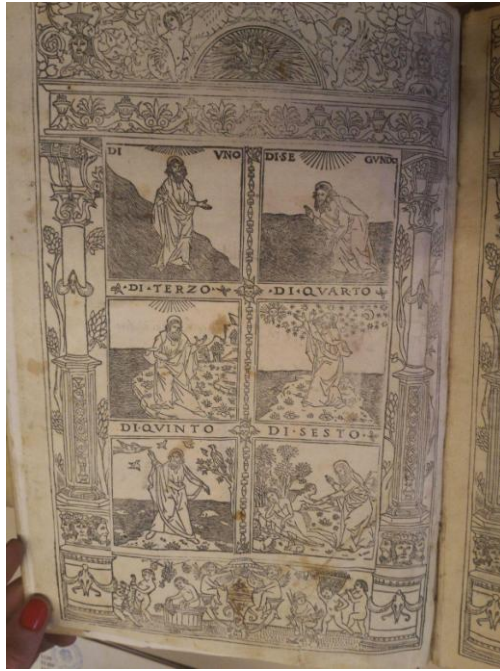 DI VNO
DI·SE GVNDO
·DI·TERZO·
·DI·QVARTO
DI·QVINTO
DI·SESTO·